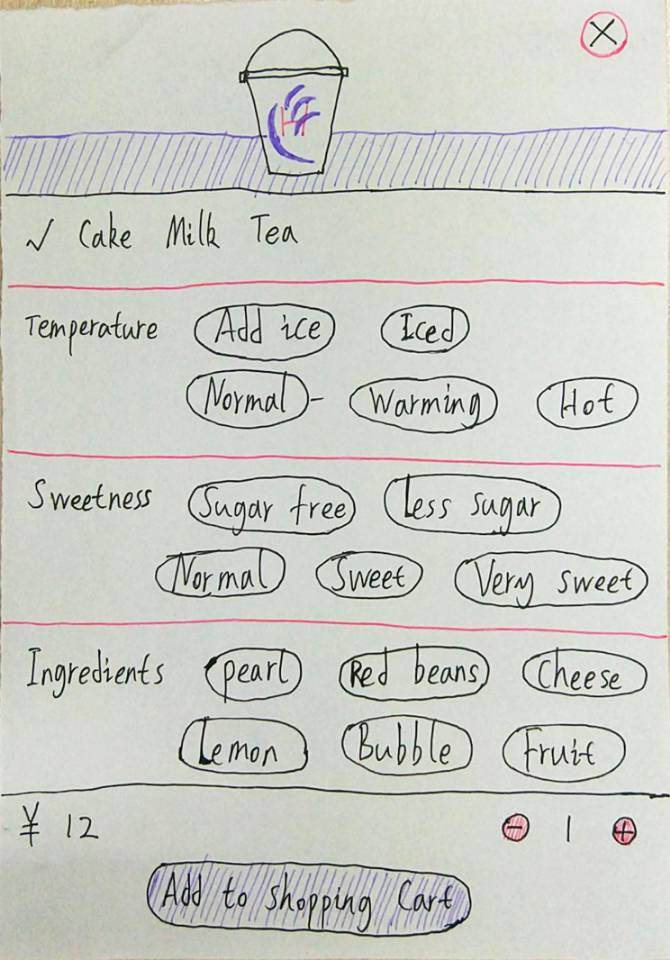 X
H
✓ Cake Milk Tea
Temperature Add ice Iced
Normal - Warming Hot
Sweetness Sugar free Less sugar
Normal Sweet Very sweet
Ingredients pearl Red beans Cheese
Lemon Bubble Fruit
¥ 12 - 1 +
Add to shopping Cart